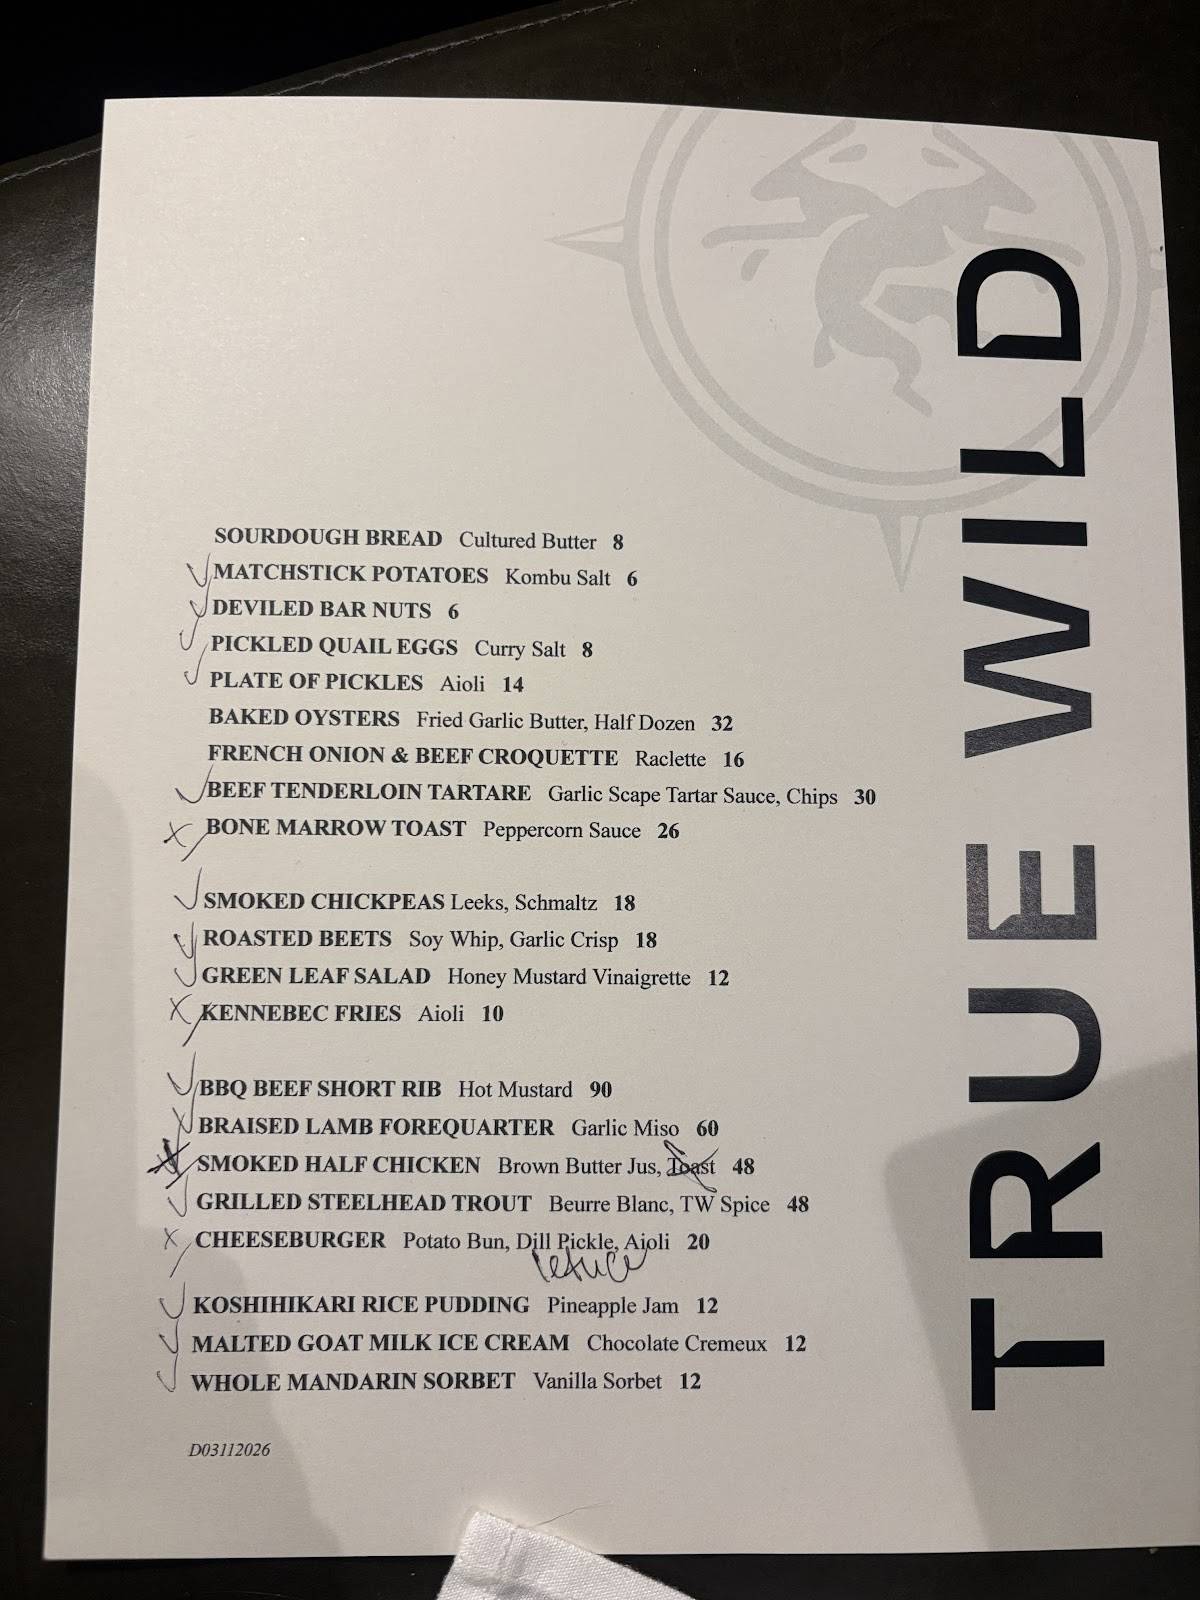 SOURDOUGH BREAD Cultured Butter 8
MATCHSTICK POTATOES Kombu Salt 6
DEVILED BAR NUTS 6
PICKLED QUAIL EGGS Curry Salt 8
PLATE OF PICKLES Aioli 14
BAKED OYSTERS Fried Garlic Butter, Half Dozen 32
FRENCH ONION & BEEF CROQUETTE Raclette 16
BEEF TENDERLOIN TARTARE Garlic Scape Tartar Sauce, Chips 30
BONE MARROW TOAST Peppercorn Sauce 26
SMOKED CHICKPEAS Leeks, Schmaltz 18
ROASTED BEETS Soy Whip, Garlic Crisp 18
GREEN LEAF SALAD Honey Mustard Vinaigrette 12
KENNEBEC FRIES Aioli 10
BBQ BEEF SHORT RIB Hot Mustard 90
BRAISED LAMB FOREQUARTER Garlic Miso 60
SMOKED HALF CHICKEN Brown Butter Jus, Toast 48
GRILLED STEELHEAD TROUT Beurre Blanc, TW Spice 48
CHEESEBURGER Potato Bun, Dill Pickle, Aioli 20
letuce
KOSHIHIKARI RICE PUDDING Pineapple Jam 12
MALTED GOAT MILK ICE CREAM Chocolate Cremeux 12
WHOLE MANDARIN SORBET Vanilla Sorbet 12
D03112026
TRUE WILD